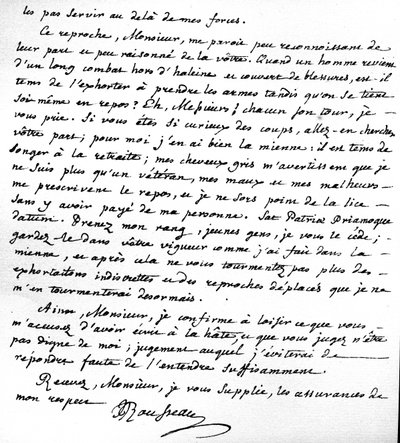 les pas servir au delà de mes forces.
Ce reproche, Monsieur, me paroit peu reconnoissant de
leur part et peu raisonné de la vôtre. Quand un homme revient
d'un long combat hors d'haleine et couvert de blessures, est-il
tems de l'exhorter à prendre les armes tandis qu'on se tient
soi-même en repos? Eh, Messieurs; chacun son tour, je
vous prie. Si vous étes si curieux des coups, allez-en chercher
vôtre part; pour moi j'en ai bien la mienne: il est tems de
songer à la retraite; mes cheveux gris m'avertissent que je
ne suis plus qu'un vétéran, mes maux et mes malheurs
me prescrivent le repos, et je ne sors point de la lice
sans y avoir payé de ma personne. Sat Patriæ Priamoque
datum. Prenez mon rang, jeunes gens, je vous le cède;
gardez-le dans vôtre vigueur comme j'ai fait dans la
mienne, et après cela ne vous tourmentez pas plus des
exhortations indiscrettes et des reproches déplacés que je ne
m'en tourmenterai desormais.
Ainsi, Monsieur, je confirme à loisir ce que vous
m'accusez d'avoir écrit à la hâte, et que vous jugez n'être
pas digne de moi; jugement auquel j'éviterai de
répondre faute de l'entendre suffisamment.
Recevez, Monsieur, je vous supplie, les assurances de
mon respect
JJRousseau